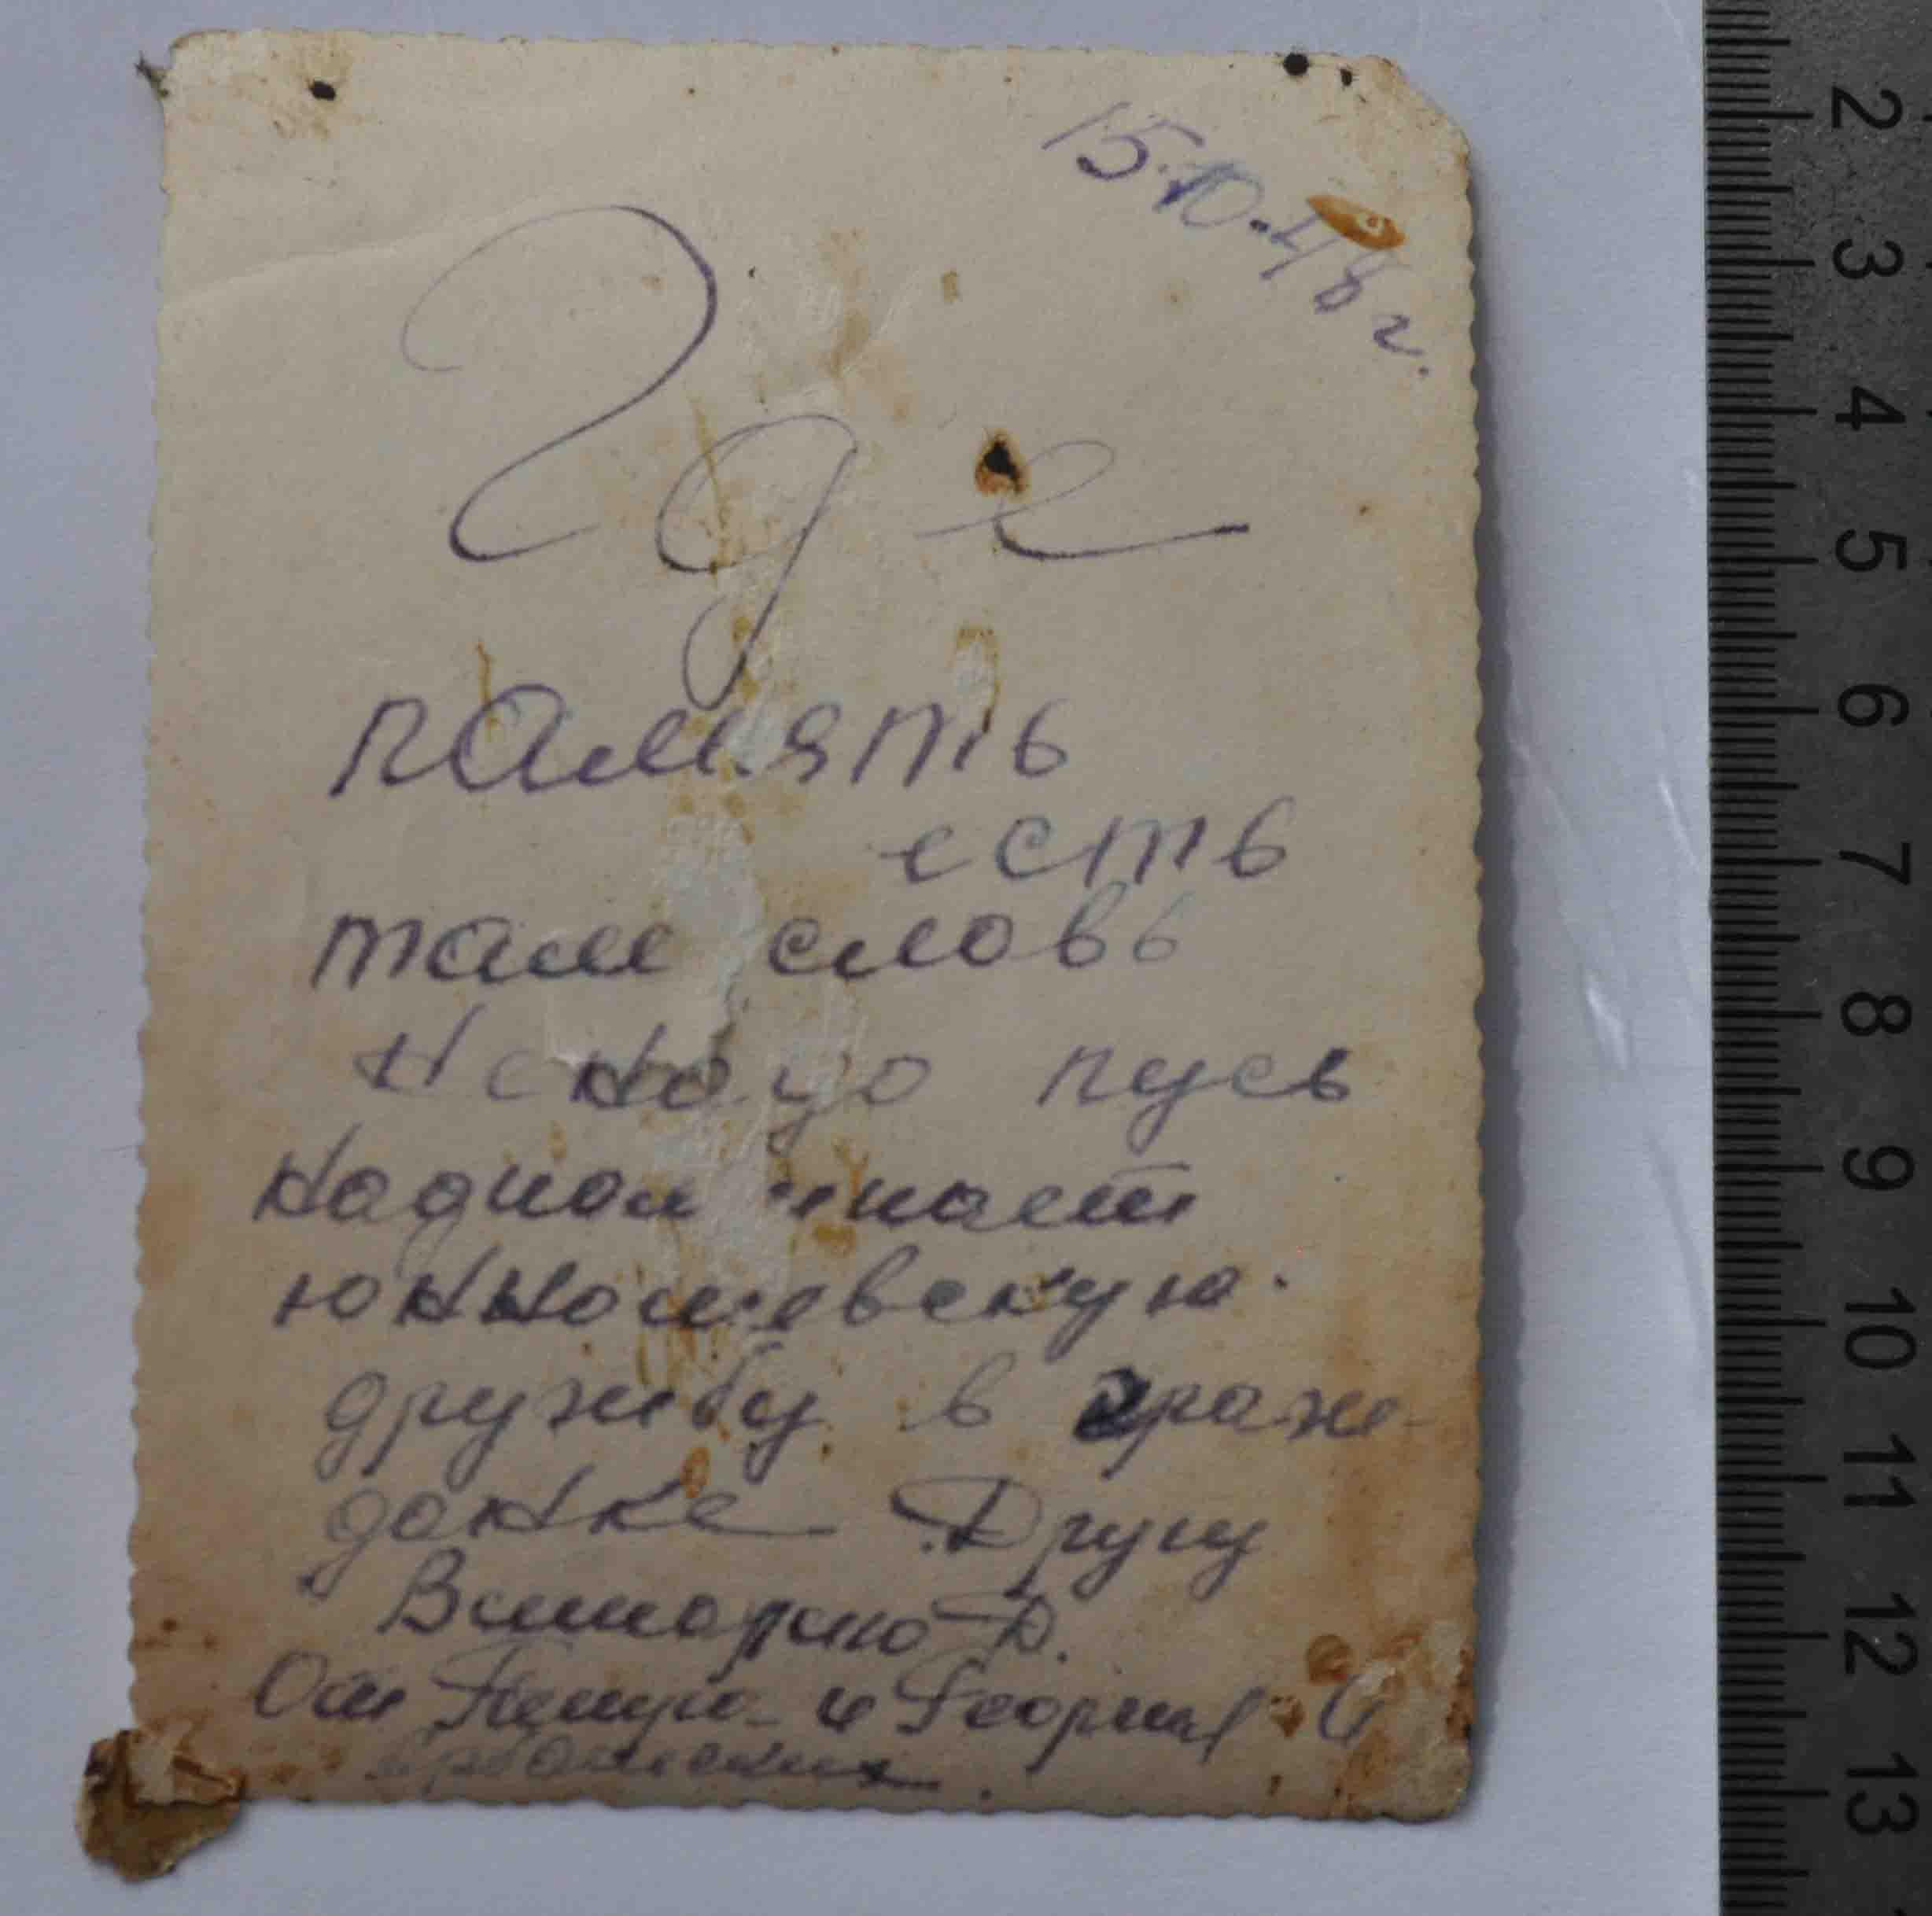 15.10.48 г.
Где
память
есть
там словь
нснаую пусь
надпоминает
юнношевскую.
дружбу в граж-
данке Другу
Виторию Д.
От Петра и Георгия
2
3
4
5
6
7
8
9
10
11
12
13